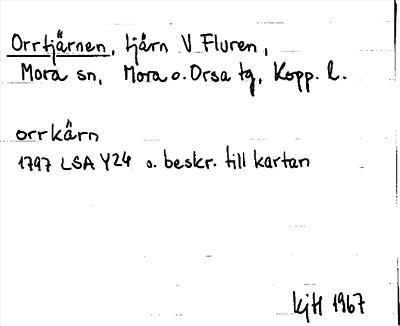 Orrtjärnen, tjärn V Fluren,
Mora sn, Mora o. Orsa tg, Kopp. l.
orrkärn
1797 LSA Y24 s. beskr. till kartan
kjH 1967